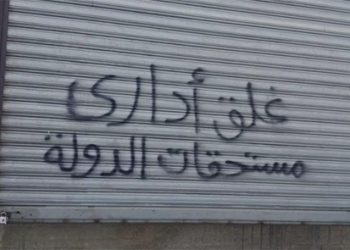 غلق أدارى
مستحقات الدولة